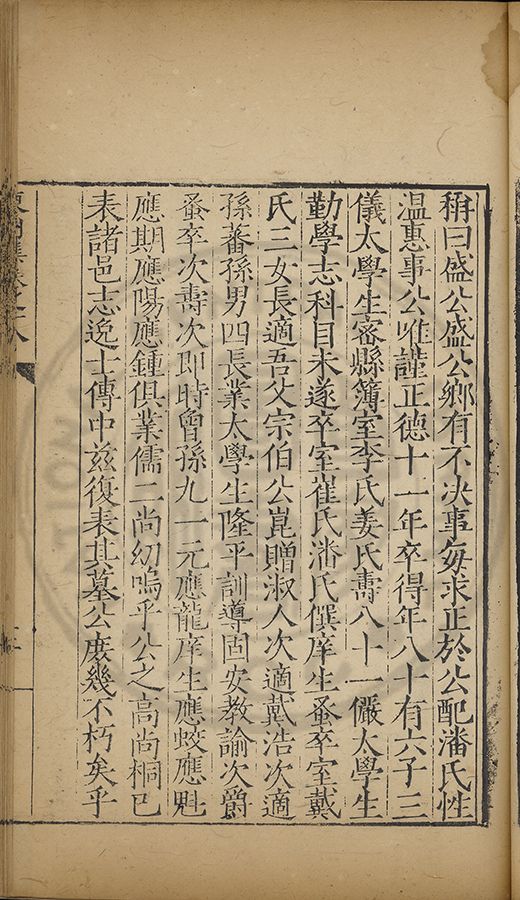 稱曰盛公盛公鄉有不决事每求正於公配潘氏性
温惠事公唯謹正德十一年卒得年八十有六子三
儀太學生密縣簿室李氏姜氏壽八十一儼太學生
勤學志科目未遂卒室崔氏潘氏僎庠生蚤卒室戴
氏三女長適吾父宗伯公崑贈淑人次適戴浩次適
孫蕃孫男四長業太學生隆平訓導固安教諭次爵
蚤卒次壽次即時曾孫九一元應龍庠生應蛟應魁
應期應陽應鍾俱業儒二尚幼嗚乎公之高尚桐已
表諸邑志逸士傳中兹復表其墓公庶幾不朽矣乎